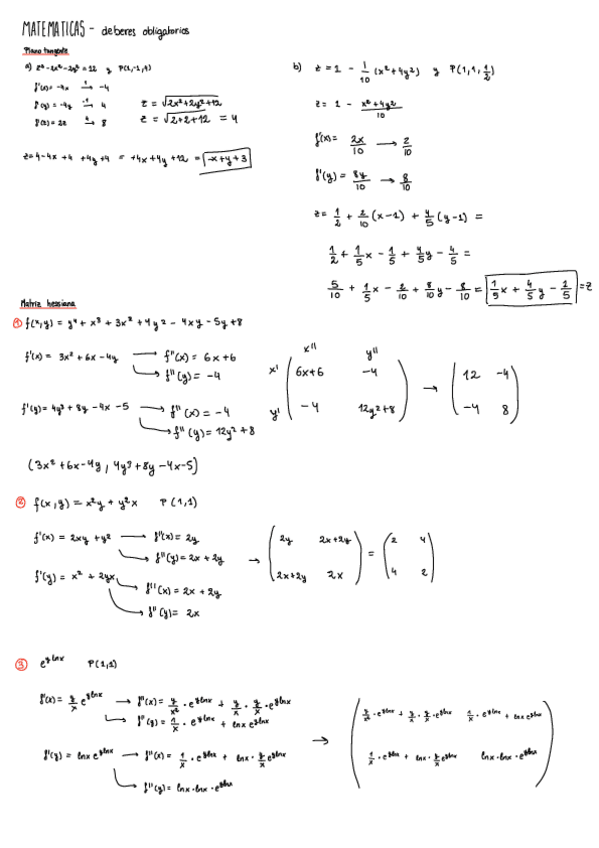 MATEMATICAS - deberes obligatorios
Plano tangente
a) z² - 2x² - 2y² = 12 y P(1,-1,4)
f'(x) = -4x → -4
f'(y) = -4y → 4
f'(z) = 2z → 8
z = √2x²+2y²+12
z = √2+2+12 = 4
z = 4 - 4x + 4 + 4y + 4 = +4x + 4y + 12 = -x + y + 3
b) z = 1 - 1/10 (x² + 4y²) y P(1,1,1/2)
z = 1 - x² + 4y²/10
f'(x) = 2x/10 → 2/10
f'(y) = 8y/10 → 8/10
z = 1/2 + 2/10 (x-1) + 4/5 (y-1) =
1/2 + 1/5 x - 1/5 + 4/5 y - 4/5 =
5/10 + 1/5 x - 2/10 + 8/10 y - 8/10 = 1/5 x + 4/5 y - 2/5 = z
Matriz hessiana
① f(x,y) = y⁴ + x³ + 3x² + 4y² - 4xy - 5y + 8
f'(x) = 3x² + 6x - 4y → f''(x) = 6x + 6
→ f''(y) = -4
f'(y) = 4y³ + 8y - 4x - 5 → f''(x) = -4
→ f''(y) = 12y² + 8
x'' y''
x' 6x+6 -4 → 12 -4
y' -4 12y²+8 -4 8
(3x² + 6x - 4y, 4y³ + 8y - 4x - 5)
② f(x,y) = x²y + y²x P(1,1)
f'(x) = 2xy + y² → f''(x) = 2y
→ f''(y) = 2x + 2y
f'(y) = x² + 2yx → f''(x) = 2x + 2y
→ f''(y) = 2x
→ 2y 2x+2y = 2 4
2x+2y 2x 4 2
③ e^ylnx P(1,1)
f'(x) = y/x e^ylnx → f''(x) = y/x² · e^ylnx + y/x · y/x · e^ylnx
→ f''(y) = 1/x · e^ylnx + lnx e^ylnx
f'(y) = lnx e^ylnx → f''(x) = 1/x · e^ylnx + lnx · y/x e^ylnx
→ f''(y) = lnx · lnx · e^ylnx
→ y/x² · e^ylnx + y/x · y/x · e^ylnx 1/x · e^ylnx + lnx e^ylnx
1/x · e^ylnx + lnx · y/x e^ylnx lnx · lnx · e^ylnx